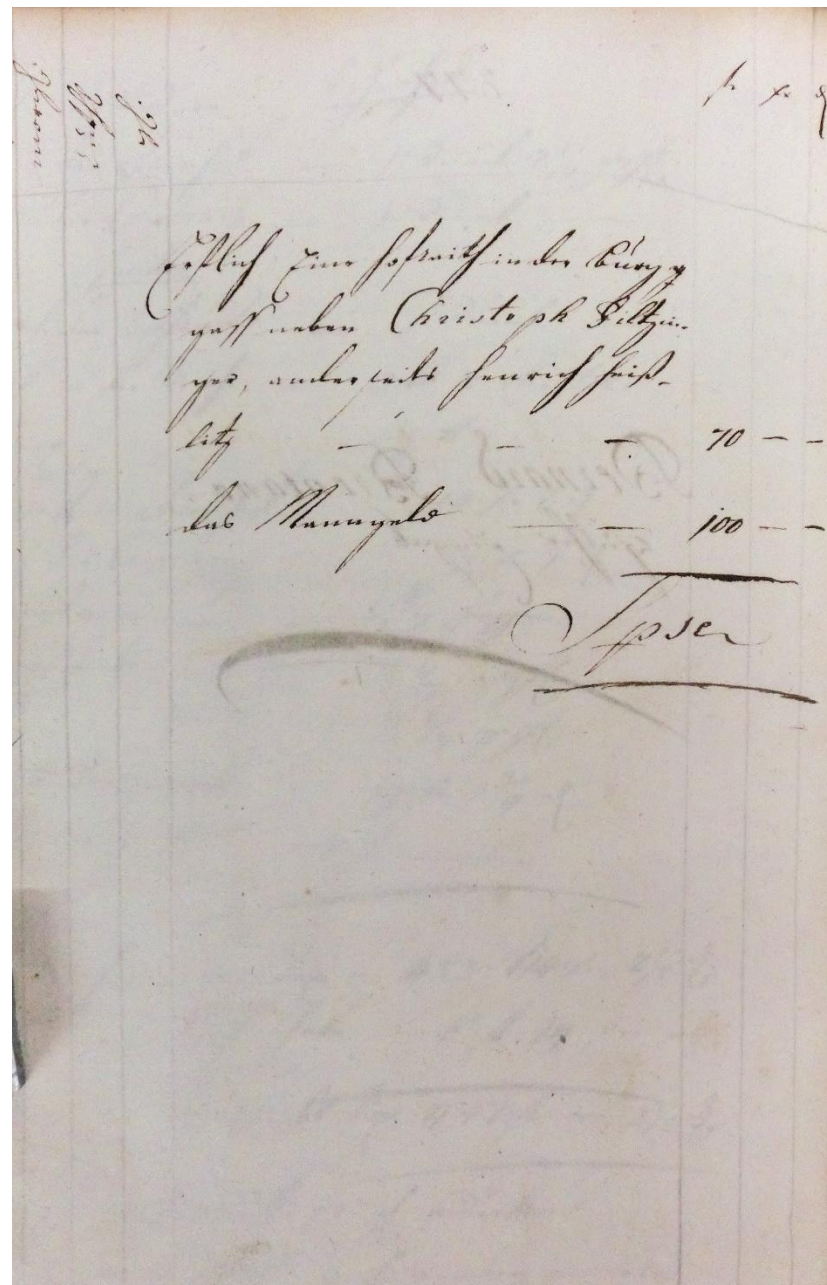 fl. xr. d
Erstlich Eine hofraith in der Burgg
gass neben Christoph Filtzin-
ger, anderseits Henrich heiß-
litz — — — 70 — —
das Manngeld — — 100 — —
Ipse